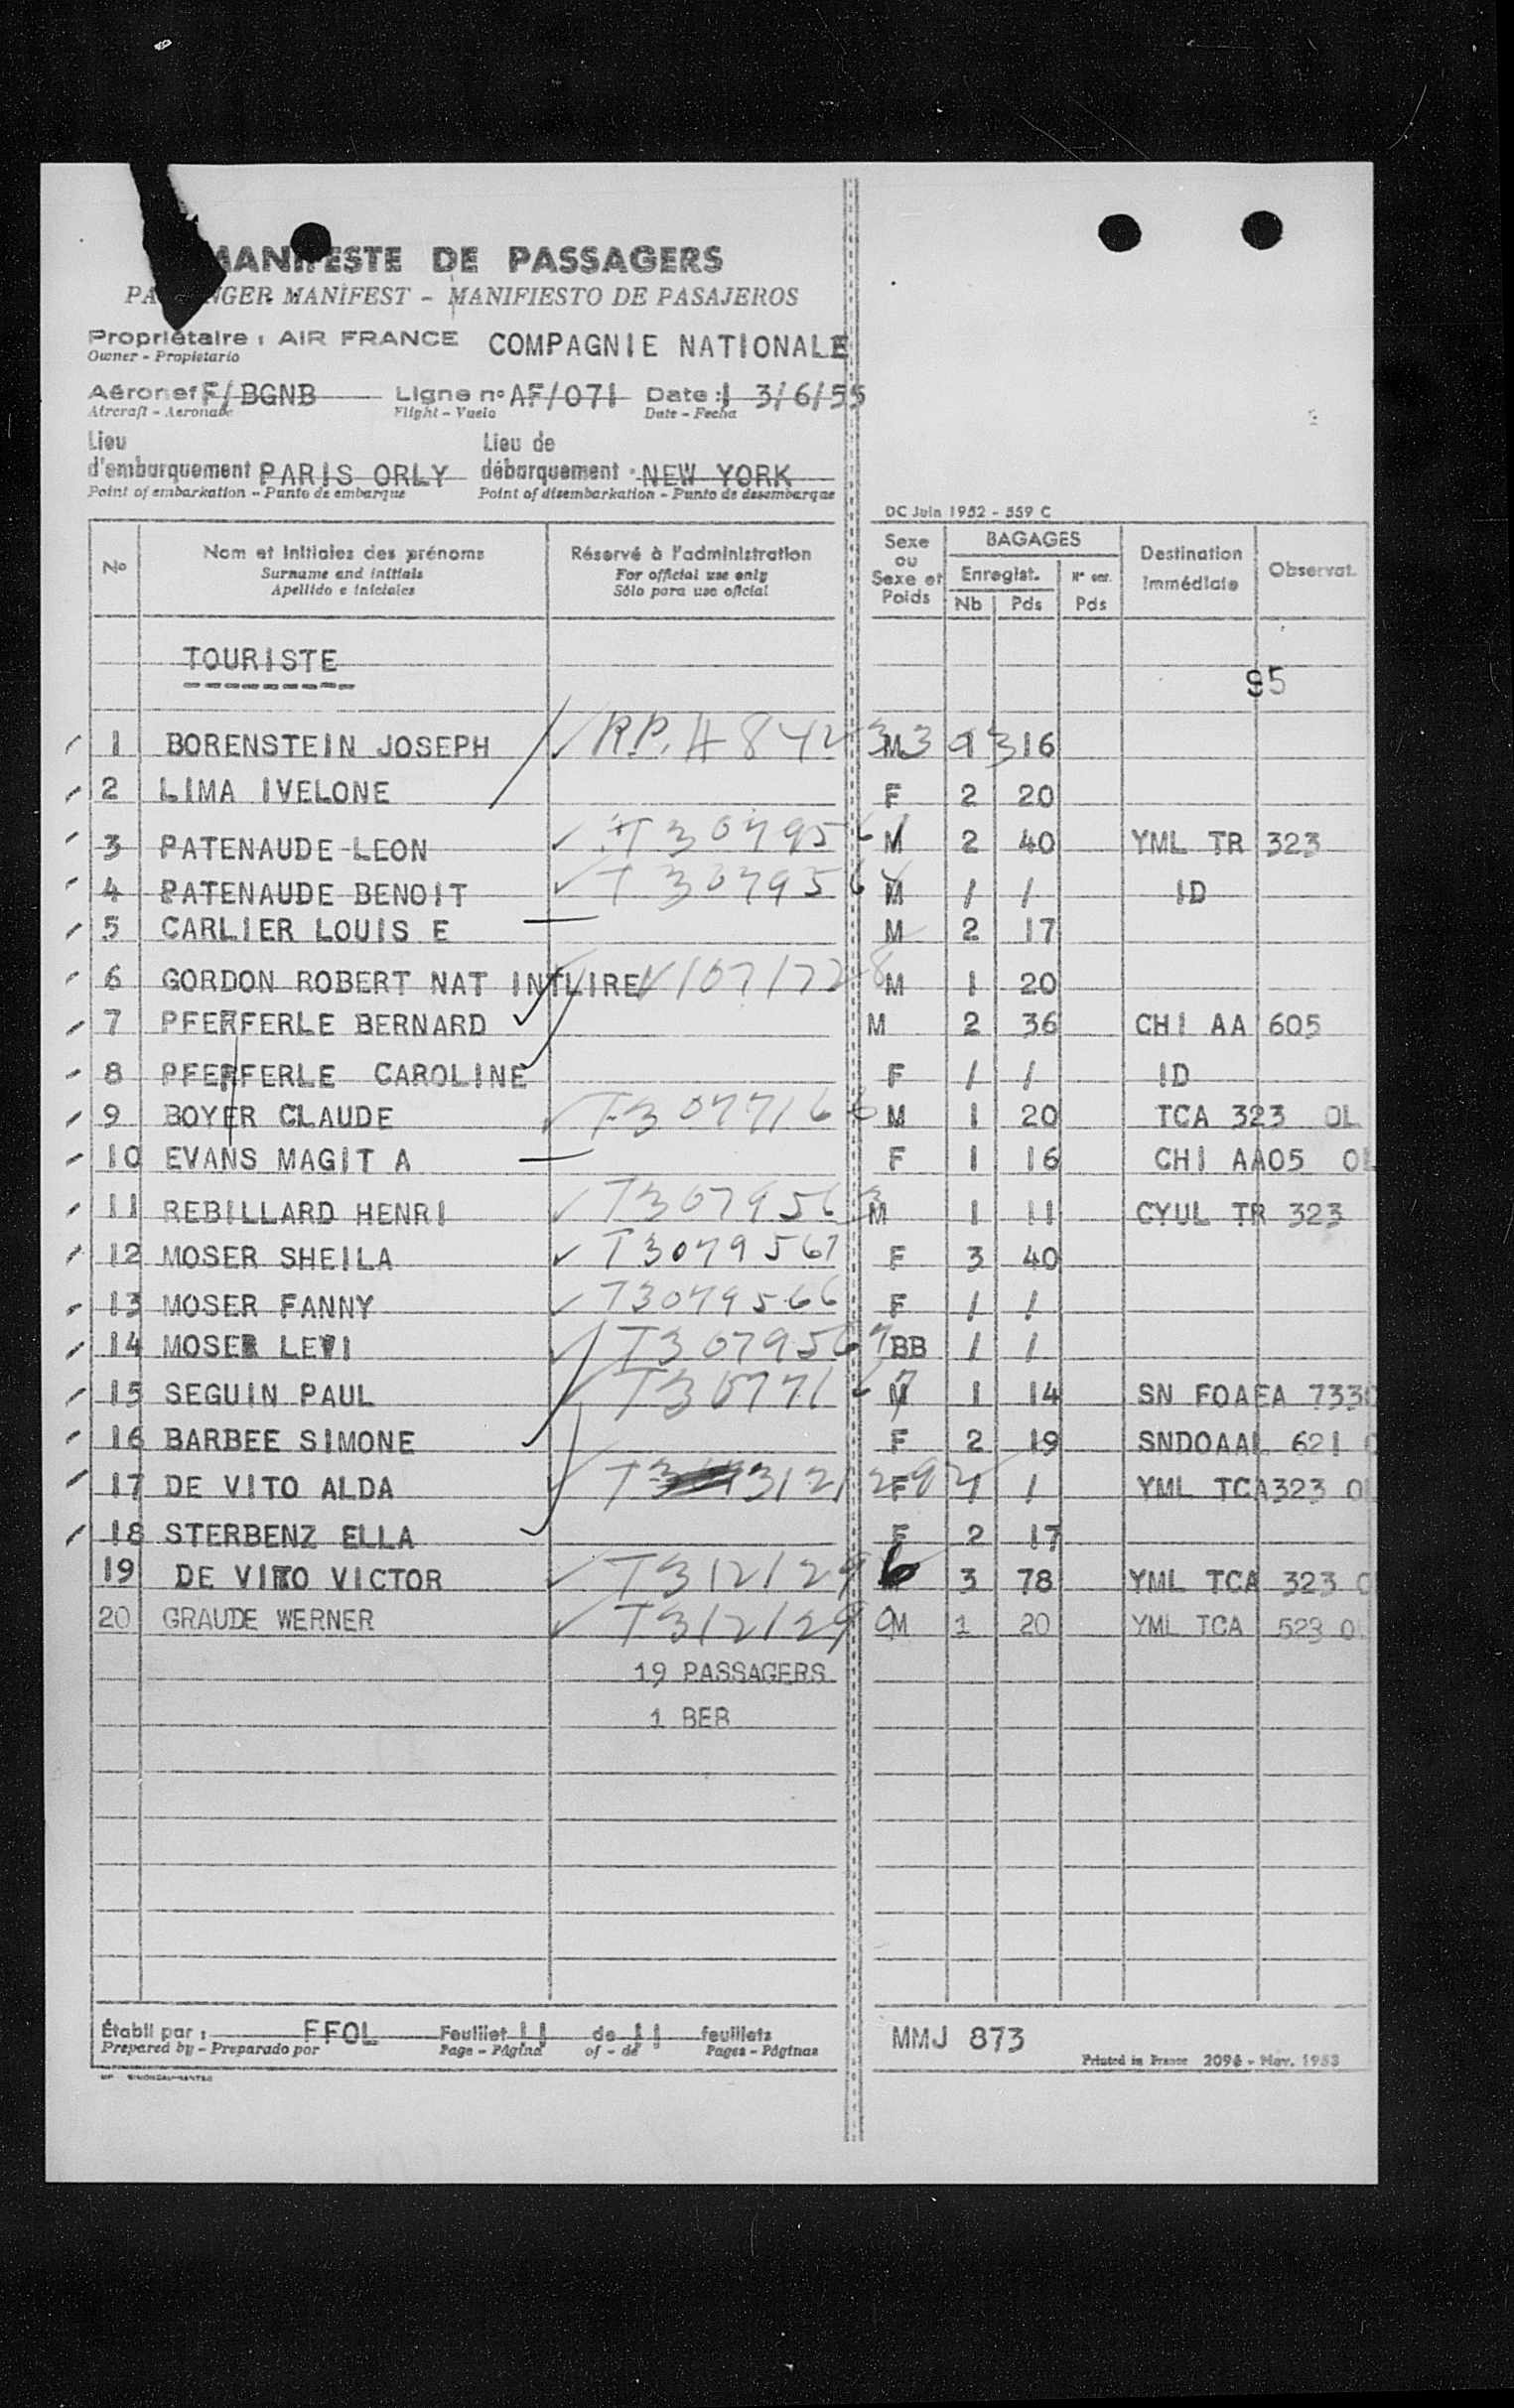 MANIFESTE DE PASSAGERS
PASSENGER MANIFEST - MANIFIESTO DE PASAJEROS
Propriétaire : AIR FRANCE COMPAGNIE NATIONALE
Owner - Propietario
Aéronef F/BGNB Ligne n° AF/071 Date : 3/6/55
Aircraft - Aeronave Flight - Vuelo Date - Fecha
Lieu d'embarquement PARIS ORLY Lieu de débarquement NEW YORK
Point of embarkation - Punto de embarque Point of disembarkation - Punto de desembarque
DC Juin 1952 - 559 C
N° Nom et Initiales des prénoms Réservé à l'administration Sexe ou Sexe et Poids BAGAGES Destination Immédiate Observat.
Surname and initials For official use only Enregist. N° enr.
Apellido e iniciales Sólo para uso oficial Nb Pds Pds
TOURISTE
95
1 BORENSTEIN JOSEPH R.P. M 1 16
2 LIMA IVELONE F 2 20
3 PATENAUDE LEON M 2 40 YML TR 323
4 PATENAUDE BENOIT M / / ID
5 CARLIER LOUIS E M 2 17
6 GORDON ROBERT NAT INTLIRE M 1 20
7 PFEFFERLE BERNARD M 2 36 CHI AA 605
8 PFEFFERLE CAROLINE F / / ID
9 BOYER CLAUDE T-3077166 M 1 20 TCA 323 OL
10 EVANS MAGIT A F 1 16 CHI AA05 OL
11 REBILLARD HENRI T3079563 M 1 11 CYUL TR 323
12 MOSER SHEILA T3079567 F 3 40
13 MOSER FANNY T3079566 F / /
14 MOSER LEVI BB / /
15 SEGUIN PAUL M 1 14 SN FOAEA 733
16 BARBEE SIMONE F 2 19 SNDOAAL 621
17 DE VITO ALDA F / / YML TCA323 OL
18 STERBENZ ELLA F 2 17
19 DE VITO VICTOR 3 78 YML TCA 323 O
20 GRAUDE WERNER M 1 20 YML TCA 523 OL
19 PASSAGERS
1 BEB
Établi par : FFOL Feuillet 11 de 11 feuillets MMJ 873
Prepared by - Preparado por Page - Página of - de Pages - Páginas Printed in France 2096 - Nov. 1953